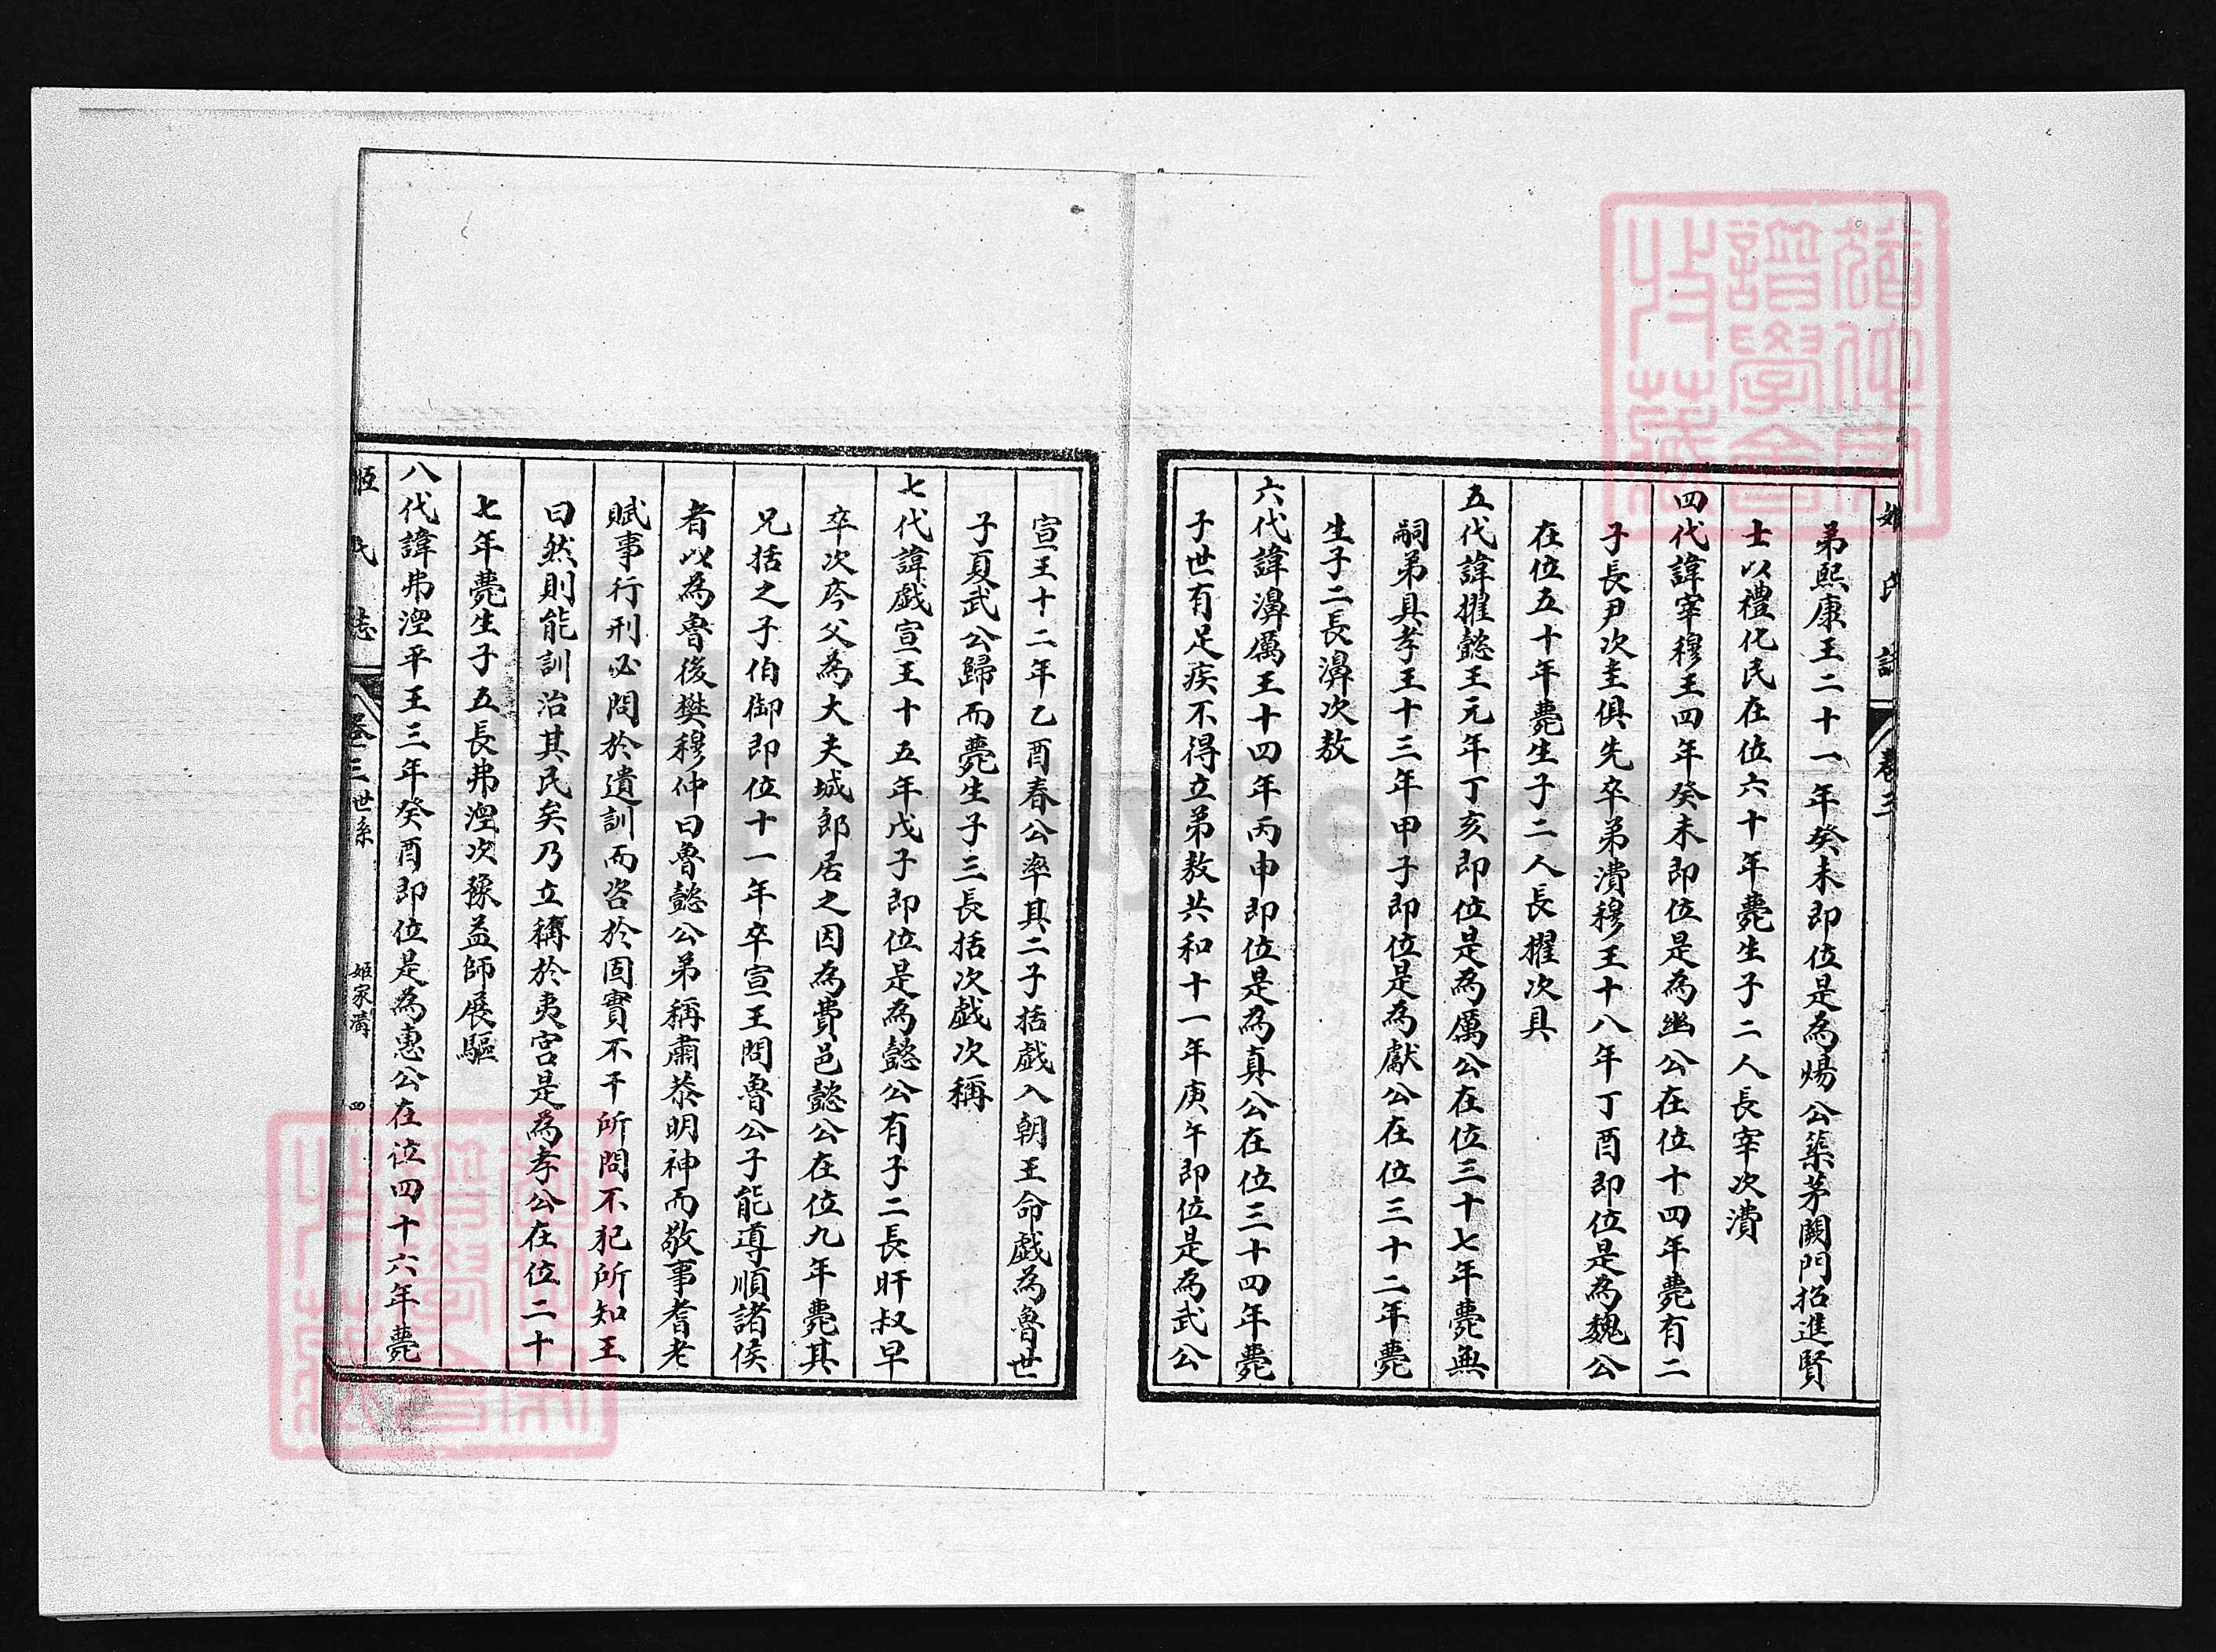 姬氏誌 卷三
弟熙康王二十一年癸未即位是為煬公築茅闕門招進賢
士以禮化民在位六十年薨生子二人長宰次潰
四代諱宰穆王四年癸未即位是為幽公在位十四年薨有二
子長尹次圭俱先卒弟潰穆王十八年丁酉即位是為魏公
在位五十年薨生子二人長擢次具
五代諱擢懿王元年丁亥即位是為厲公在位三十七年薨無
嗣弟具孝王十三年甲子即位是為獻公在位三十二年薨
生子二長濞次敖
六代諱濞厲王十四年丙申即位是為真公在位三十四年薨
子世有足疾不得立弟敖共和十一年庚午即位是為武公
宣王十二年乙酉春公率其二子括戲入朝王命戲為魯世
子夏武公歸而薨生子三長括次戲次稱
七代諱戲宣王十五年戊子即位是為懿公有子二長旰叔早
卒次庈父為大夫城郎居之因為費邑懿公在位九年薨其
兄括之子伯御即位十一年卒宣王問魯公子能導順諸侯
者以為魯後樊穆仲曰魯懿公弟稱肅恭明神而敬事耆老
賦事行刑必問於遺訓而咨於固實不干所問不犯所知王
曰然則能訓治其民矣乃立稱於夷宮是為孝公在位二十
七年薨生子五長弗湼次豫益師展驅
八代諱弗湼平王三年癸酉即位是為惠公在位四十六年薨
姬氏誌 卷三 世系 姬家溝 四
譜學會
收藏
FamilySearch